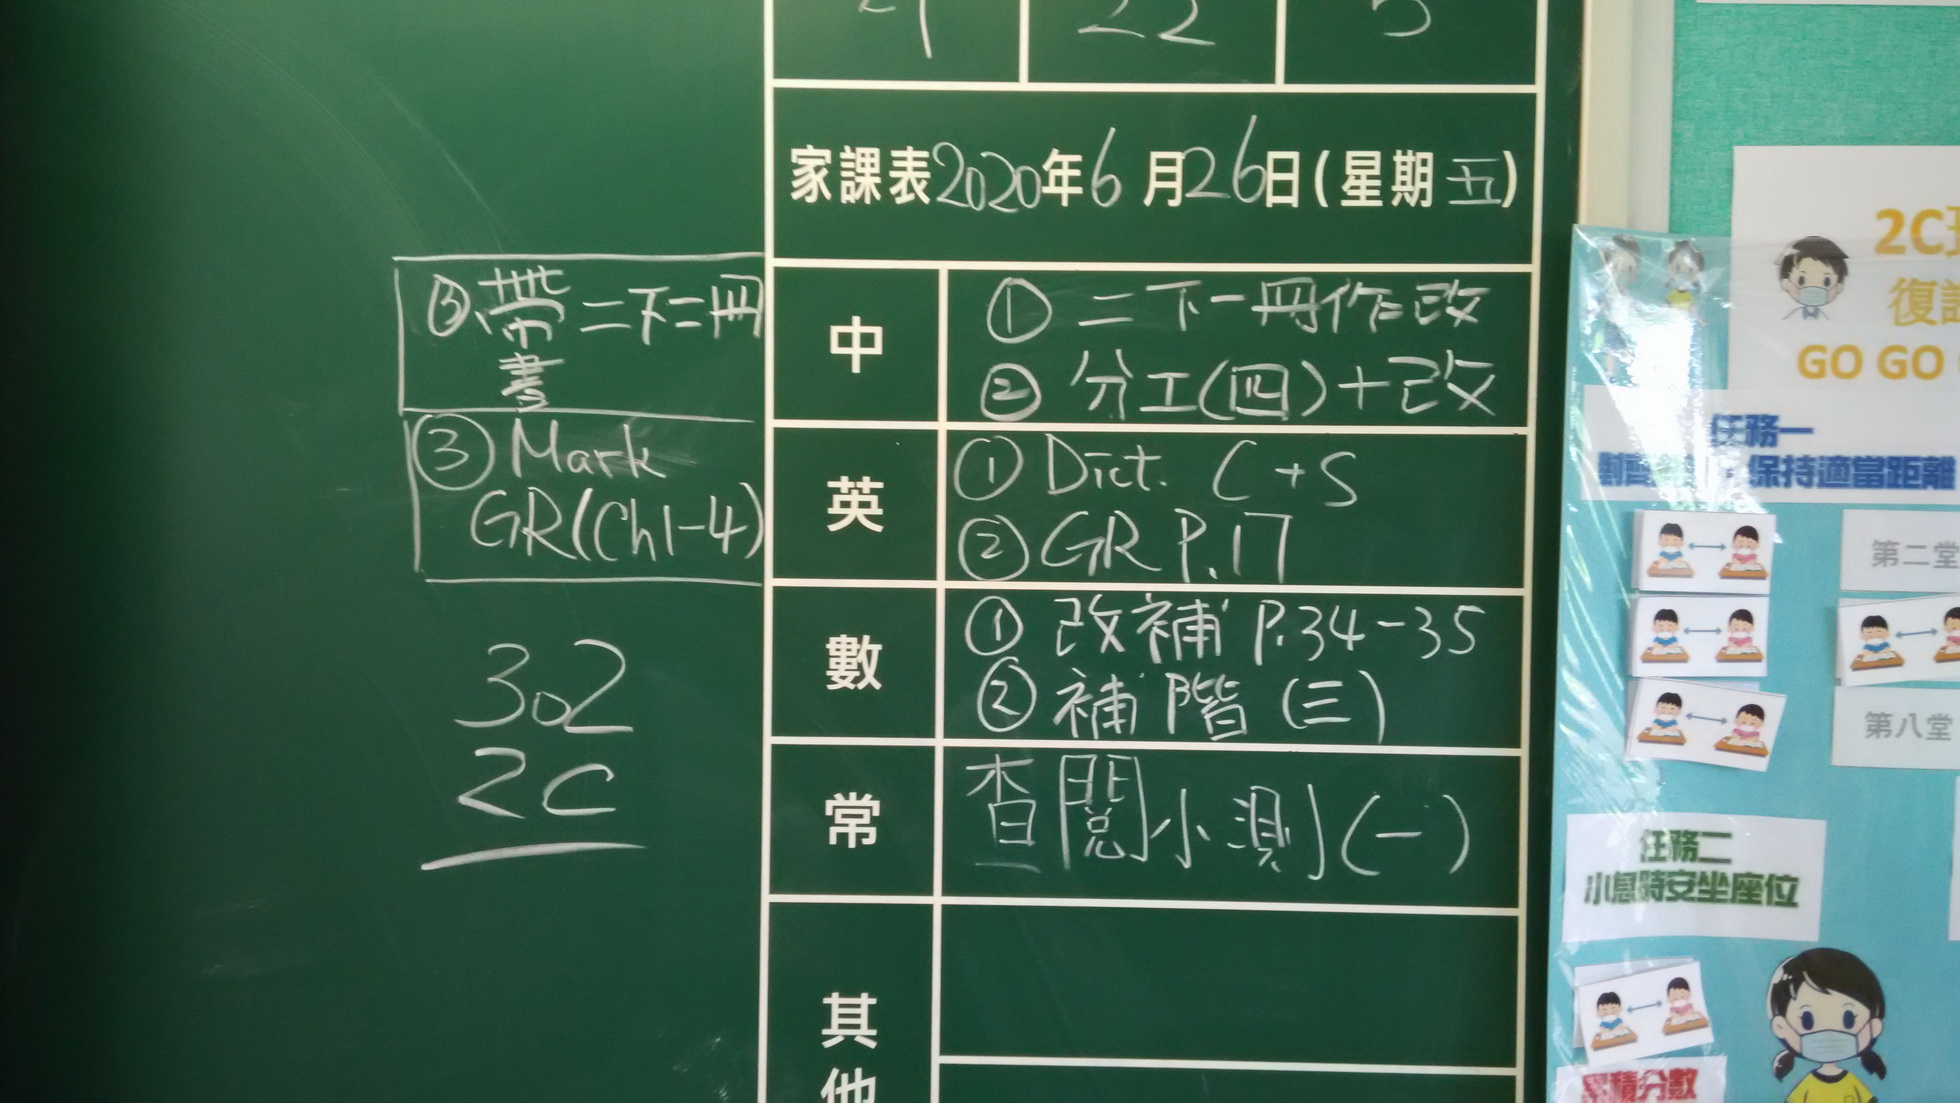 22
家課表2020年6月26日(星期五)
③帶二下二冊
書
中
① 二下一冊作改
② 分工(四)+改
③ Mark
GR(Ch1-4)
英
① Dict. C+S
② GR P.17
數
① 改補 P.34-35
② 補階 (三)
常
查閱小測(一)
302
2C
其
他
2C
GO GO
任務一
保持適當距離
第二堂
第八堂
任務二
小息時安坐座位
累積分數